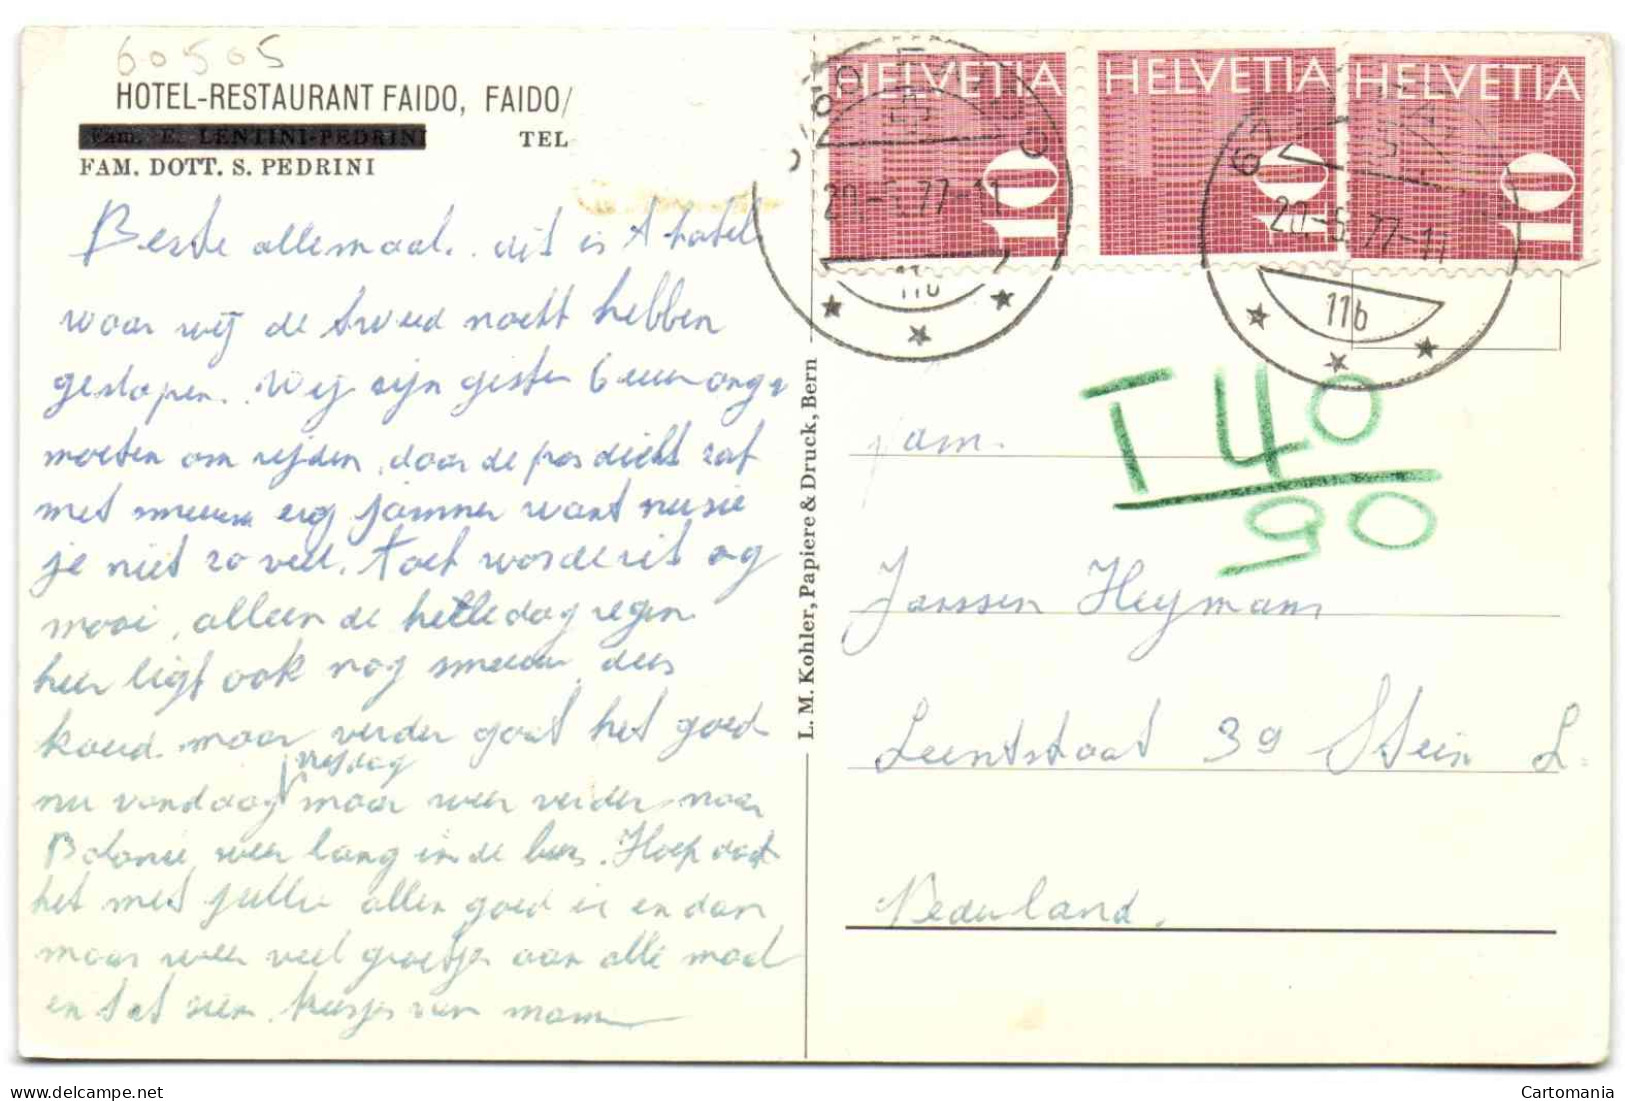 60505
HOTEL-RESTAURANT FAIDO, FAIDO/
Fam. E. LENTINI-PEDRINI TEL
FAM. DOTT. S. PEDRINI
Beste allemaal. dit is t hotel
waar wij de tweed nacht hebben
geslapen. Wij zijn gister 6 uur
moeten om rijden, daar de pas dicht zat
met sneeuw erg jammer want nu zie
je niet zo veel. toch worde rit og
mooi, alleen de helledag regen
hier ligt ook nog sneeuw, dus
koud. maar verder gaat het goed
vrijdag
nu vandaag maar weer verder naar
weer lang in de bus. Hoep dat
het met jullie allen goed is en dan
maar weer veel groetjes aan alle maal
en tot zien. kusjes van mam
L. M. Kohler, Papiere & Druck, Bern
HELVETIA 10
HELVETIA 10
HELVETIA 10
20.-5.77-11
11b
20.-5.77-11
11b
T 40
90
fam.
Janssen Heymans
Leentstaat 39 Stein L.
Nederland.
Cartomania